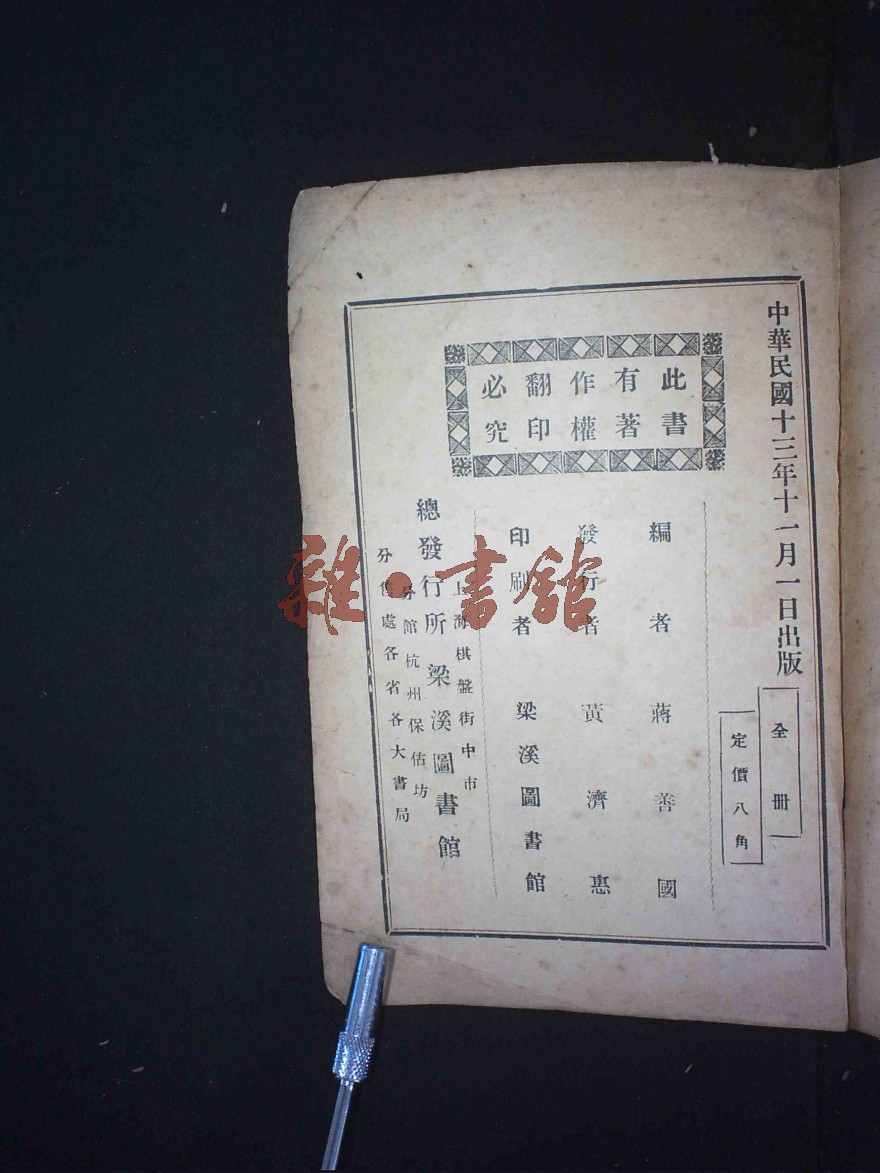 中華民國十三年十一月一日出版
全册
定價八角
此書
有著
作權
翻印
必究
編者蔣善國
發行者黃濟惠
印刷者梁溪圖書館
上海棋盤街中市
總發行所梁溪圖書館
分館杭州保佑坊
分售處各省各大書局
雜·書館